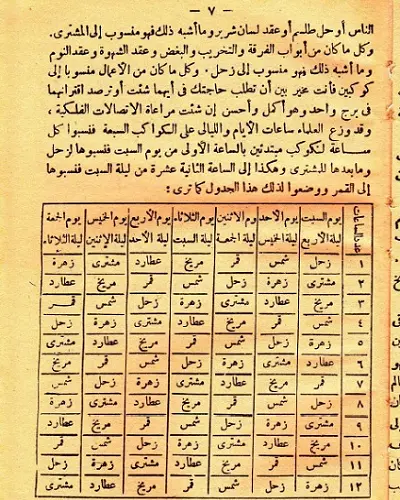 — ٧ —
الناس أو حل طلسم أو عقد لسان شرير وما أشبه ذلك فهو منسوب إلى المشترى.
وكل ما كان من أبواب الفرقة والتخريب والبغض وعقد الشهوة وعقد النوم
وما أشبه ذلك فهو منسوب إلى زحل . وكل ما كان من الأعمال منسوبا إلى
كوكبين فأنت مخير بين أن تطلب حاجتك في أيهما شئت أو ترصد اقترانهما
في برج واحد وهو أكمل وأحسن إن شئت مراعاة الاتصالات الفلكية ،
وقد وزع العلماء ساعات الأيام والليالى على الكواكب السبعة فنسبوا كل
ساعة لكوكب مبتدئين بالساعة الأولى من يوم السبت فنسبوها لزحل
وما بعدها للمشترى وهكذا إلى الساعة الثانية عشرة من ليلة السبت فنسبوها
إلى القمر ووضعوا لذلك هذا الجدول كما ترى :
عدد الساعات يوم السبت يوم الأحد يوم الاثنين يوم الثلاثاء يوم الأربع يوم الخيس يوم الجمعة
ليلة الأربع ليلة الخميس ليلة الجمعة ليلة السبت ليلة الأحد ليلة الإثنين ليلة الثلاثاء
١ زحل شمس قمر مريخ عطارد مشترى زهرة
٢ مشترى زهرة زحل شمس قمر مريخ عطارد
٣ مريخ عطارد مشترى زهرة زحل شمس قمر
٤ شمس قمر مريخ عطارد مشترى زهرة زحل
٥ زهرة زحل شمس قمر مريخ عطارد مشترى
٦ عطارد مشترى زهرة زحل شمس قمر مريخ
٧ قمر مريخ عطارد مشترى زهرة زحل شمس
٨ زحل شمس قمر مريخ عطارد مشترى زهرة
٩ مشترى زهرة زحل شمس قمر مريخ عطارد
١٠ مريخ عطارد مشترى زهرة زحل شمس قمر
١١ شمس قمر مريخ عطارد مشترى زهرة زحل
١٢ زهرة زحل شمس قمر مريخ عطارد مشترى